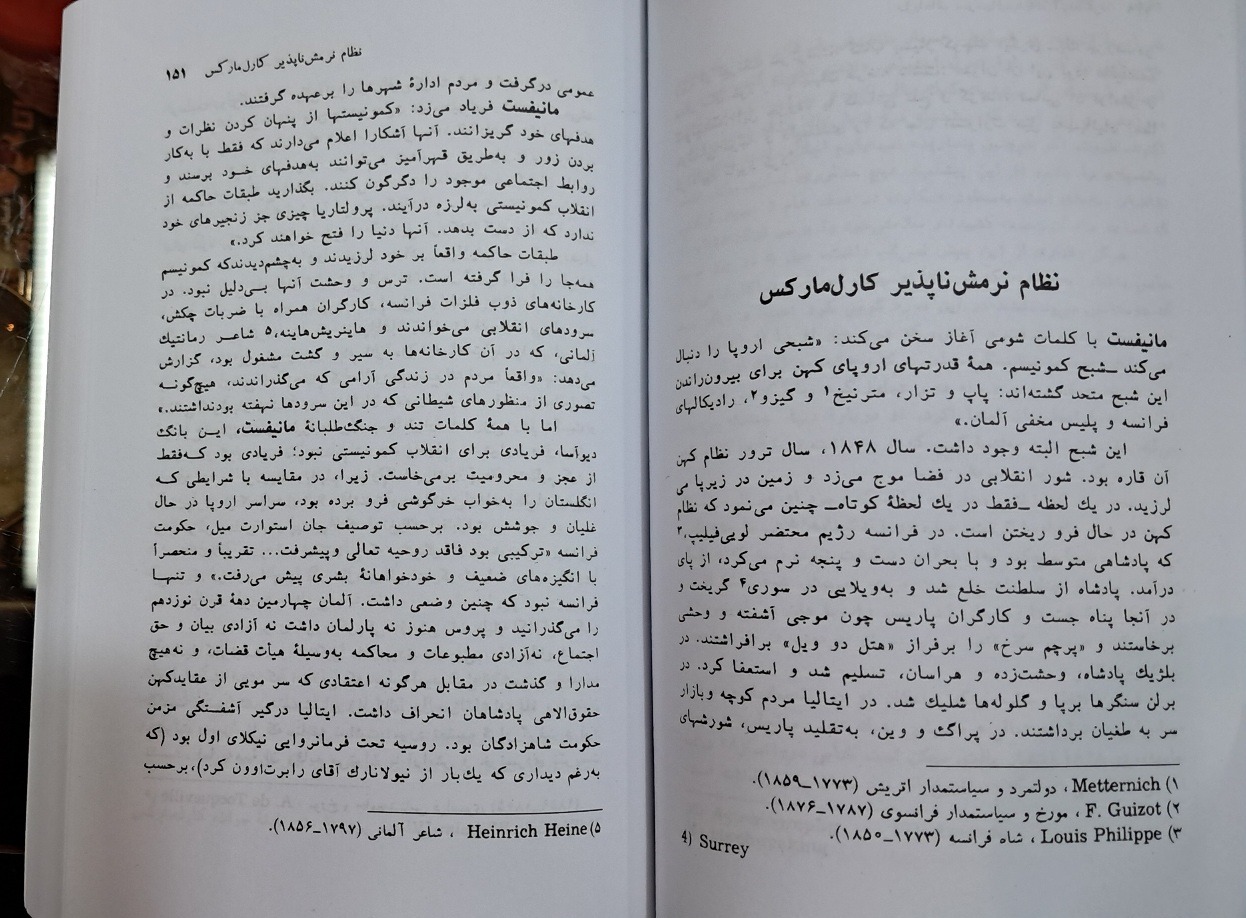 نظام نرمش‌ناپذیر کارل‌مارکس
مانیفست با کلمات شومی آغاز سخن می‌کند: «شبحی اروپا را دنبال
می‌کند ــشبح کمونیسم. همهٔ قدرتهای اروپای کهن برای بیرون‌راندن
این شبح متحد گشته‌اند: پاپ و تزار، مترنیخ۱ و گیزو۲، رادیکالهای
فرانسه و پلیس مخفی آلمان.»
این شبح البته وجود داشت. سال ۱۸۴۸، سال ترور نظام کهن
آن قاره بود. شور انقلابی در فضا موج می‌زد و زمین در زیرپا می
لرزید. در یك لحظه ــفقط در یك لحظهٔ کوتاه‌ــ چنین می‌نمود که نظام
کهن در حال فرو ریختن است. در فرانسه رژیم محتضر لویی‌فیلیپ،۳
که پادشاهی متوسط بود و با بحران دست و پنجه نرم می‌کرد، از پای
درآمد. پادشاه از سلطنت خلع شد و به‌ویلایی در سوری۴ گریخت و
در آنجا پناه جست و کارگران پاریس چون موجی آشفته و وحشی
برخاستند و «پرچم سرخ» را برفراز «هتل دو ویل» برافراشتند. در
بلژیك پادشاه، وحشت‌زده و هراسان، تسلیم شد و استعفا کرد. در
برلن سنگرها برپا و گلوله‌ها شلیك شد. در ایتالیا مردم کوچه و بازار
سر به طغیان برداشتند. در پراگ و وین، به‌تقلید پاریس، شورشهای
۱) Metternich، دولتمرد و سیاستمدار اتریش (۱۷۷۳ــ۱۸۵۹).
۲) F. Guizot، مورخ و سیاستمدار فرانسوی (۱۷۸۷ــ۱۸۷۶).
۳) Louis Philippe، شاه فرانسه (۱۷۷۳ــ۱۸۵۰).
4) Surrey
نظام نرمش‌ناپذیر کارل‌مارکس ۱۵۱
عمومی درگرفت و مردم ادارهٔ شهرها را برعهده گرفتند.
مانیفست فریاد می‌زد: «کمونیستها از پنهان کردن نظرات و
هدفهای خود گریزانند. آنها آشکارا اعلام می‌دارند که فقط با به‌کار
بردن زور و به‌طریق قهرآمیز می‌توانند به‌هدفهای خود برسند و
روابط اجتماعی موجود را دگرگون کنند. بگذارید طبقات حاکمه از
انقلاب کمونیستی به‌لرزه درآیند. پرولتاریا چیزی جز زنجیرهای خود
ندارد که از دست بدهد. آنها دنیا را فتح خواهند کرد.»
طبقات حاکمه واقعاً بر خود لرزیدند و به‌چشم‌دیدندکه کمونیسم
همه‌جا را فرا گرفته است. ترس و وحشت آنها بی‌دلیل نبود. در
کارخانه‌های ذوب فلزات فرانسه، کارگران همراه با ضربات چکش،
سرودهای انقلابی می‌خواندند و هاینریش‌هاینه،۵ شاعر رمانتیك
آلمانی، که در آن کارخانه‌ها به سیر و گشت مشغول بود، گزارش
می‌دهد: «واقعاً مردم در زندگی آرامی که می‌گذراندند، هیچ‌گونه
تصوری از منظورهای شیطانی که در این سرودها نهفته بودنداشتند.»
اما با همهٔ کلمات تند و جنگ‌طلبانهٔ مانیفست، این بانگ
دیوآسا، فریادی برای انقلاب کمونیستی نبود؛ فریادی بود که‌فقط
از عجز و محرومیت برمی‌خاست. زیرا، در مقایسه با شرایطی که
انگلستان را به‌خواب خرگوشی فرو برده بود، سراسر اروپا در حال
غلیان و جوشش بود. برحسب توصیف جان استوارت میل، حکومت
فرانسه «ترکیبی بود فاقد روحیه تعالی وپیشرفت... تقریباً و منحصراً
با انگیزه‌های ضعیف و خودخواهانهٔ بشری پیش می‌رفت.» و تنها
فرانسه نبود که چنین وضعی داشت. آلمان چهارمین دههٔ قرن نوزدهم
را می‌گذرانید و پروس هنوز نه پارلمان داشت نه آزادی بیان و حق
اجتماع، نه‌آزادی مطبوعات و محاکمه به‌وسیلهٔ هیأت قضات، و نه‌هیچ
مدارا و گذشت در مقابل هرگونه اعتقادی که سر مویی از عقایدکهن
حقوق‌الاهی پادشاهان انحراف داشت. ایتالیا درگیر آشفتگی مزمن
حکومت شاهزادگان بود. روسیه تحت فرمانروایی نیکلای اول بود (که
به‌رغم دیداری که یك‌بار از نیولانارك آقای رابرت‌اوون کرد)،برحسب
۵) Heinrich Heine، شاعر آلمانی (۱۷۹۷ــ۱۸۵۶).